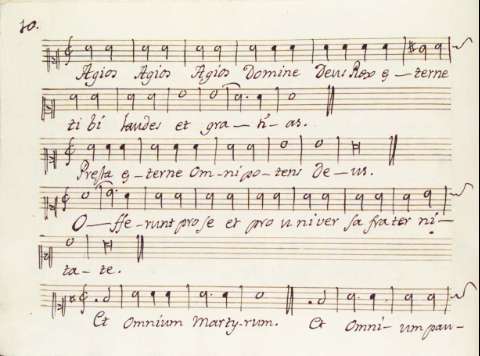 10.
Agios Agios Agios Domine Deus Rex ę-terne
ti bi laudes et gra-ti-as.
Pręsta ę-terne Om-ni po-tens De-us.
O-ffe-runt pro se et pro u ni ver sa fra ter ni-
ta-te.
Et Omnium Marty-rum. Et Omni-um pau-